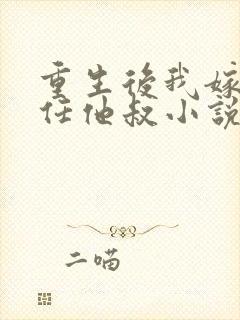 重生後我嫁
任他叔小說
二喵